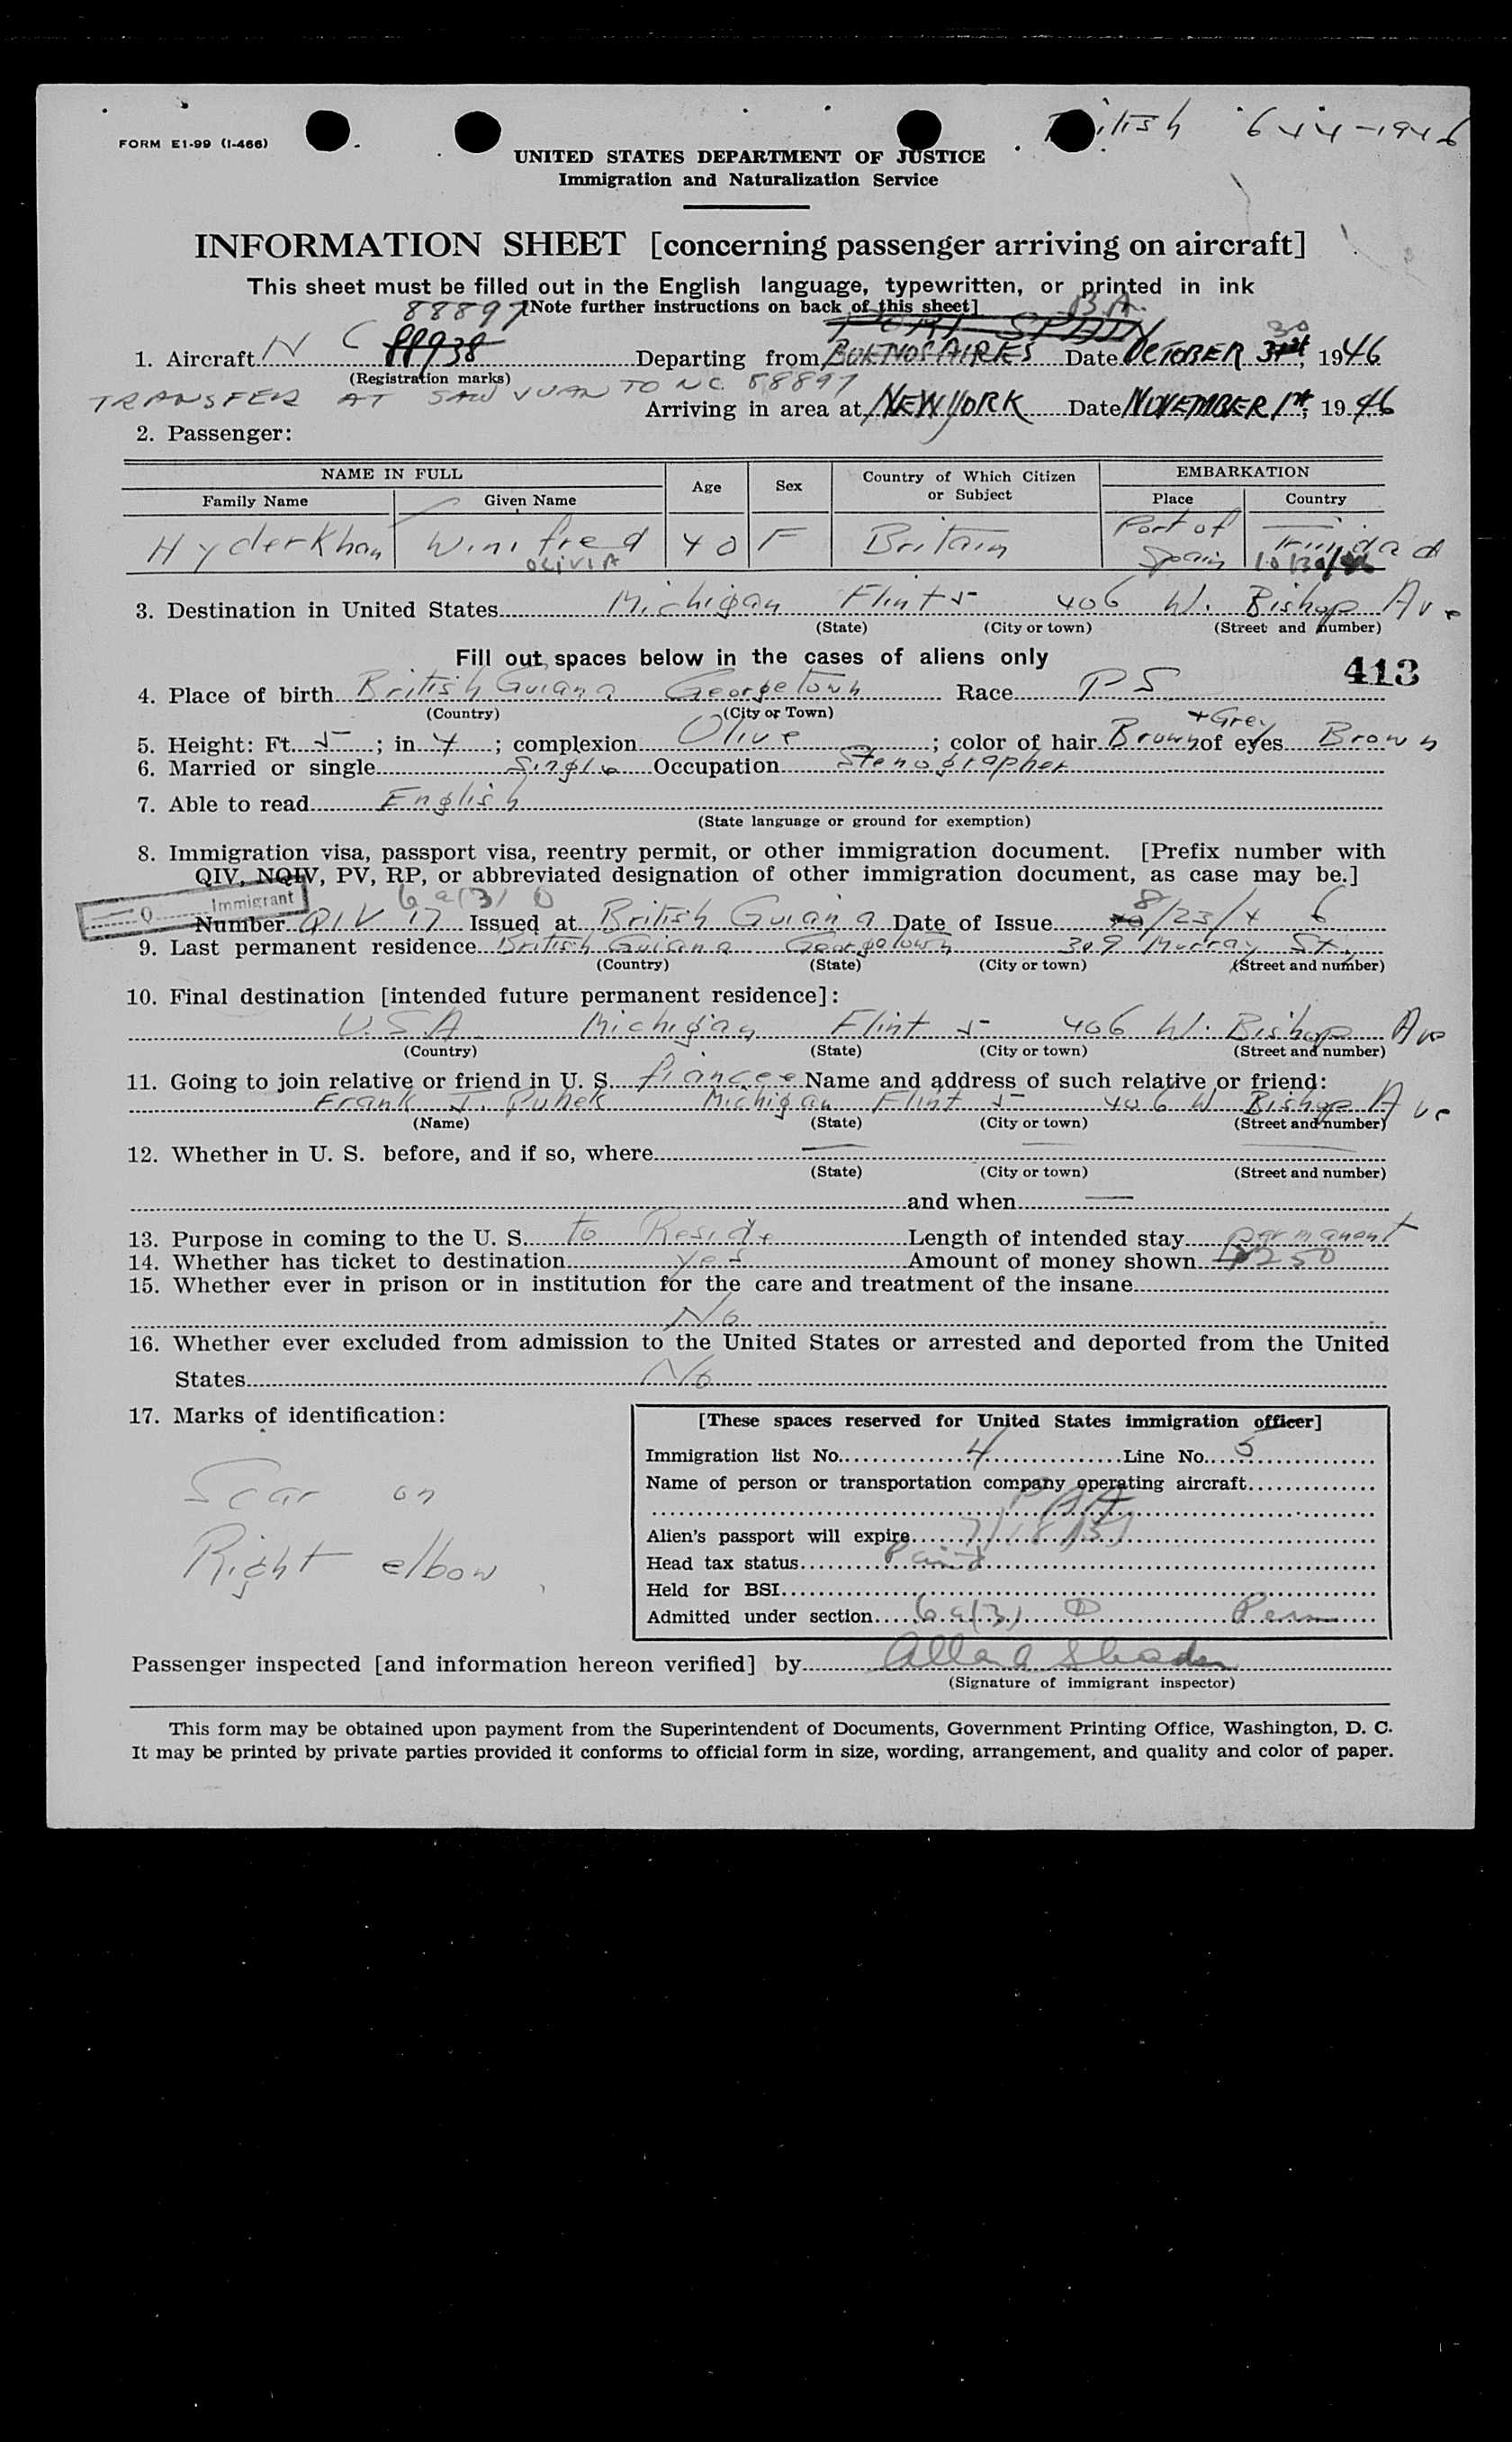 British 6-14-1946
FORM E1-99 (I-466)
UNITED STATES DEPARTMENT OF JUSTICE
Immigration and Naturalization Service
INFORMATION SHEET [concerning passenger arriving on aircraft]
This sheet must be filled out in the English language, typewritten, or printed in ink
[Note further instructions on back of this sheet]
88897 PORT SPAIN B.A. 30
1. Aircraft N C 88938 Departing from BUENOS AIRES Date OCTOBER 31st, 1946
(Registration marks)
TRANSFER AT SAN JUAN TO NC 88897
Arriving in area at NEW YORK Date NOVEMBER 1st, 1946
2. Passenger:
NAME IN FULL Age Sex Country of Which Citizen or Subject EMBARKATION
Family Name Given Name Place Country
HyderKhan Winifred 40 F Britain Port of Spain Trinidad
OLIVIA 10/30/46
3. Destination in United States Michigan Flint 5 406 W. Bishop Ave
(State) (City or town) (Street and number)
Fill out spaces below in the cases of aliens only
413
4. Place of birth British Guiana Georgetown Race P S
(Country) (City or Town)
5. Height: Ft. 5; in 4; complexion Olive; color of hair Brown + Grey of eyes Brown
6. Married or single Single Occupation Stenographer
7. Able to read English
(State language or ground for exemption)
8. Immigration visa, passport visa, reentry permit, or other immigration document. [Prefix number with
QIV, NQIV, PV, RP, or abbreviated designation of other immigration document, as case may be.]
Q Immigrant 6a(3) 0
Number QIV 17 Issued at British Guiana Date of Issue 8/23/46
9. Last permanent residence British Guiana Georgetown 309 Murray St.
(Country) (State) (City or town) (Street and number)
10. Final destination [intended future permanent residence]:
U.S.A Michigan Flint 5 406 W. Bishop Ave
(Country) (State) (City or town) (Street and number)
11. Going to join relative or friend in U. S. fiancee Name and address of such relative or friend:
Frank J. Puhek Michigan Flint 5 406 W Bishop Ave
(Name) (State) (City or town) (Street and number)
12. Whether in U. S. before, and if so, where — — —
(State) (City or town) (Street and number)
and when —
13. Purpose in coming to the U. S. to Reside Length of intended stay permanent
14. Whether has ticket to destination yes Amount of money shown $250
15. Whether ever in prison or in institution for the care and treatment of the insane
No
16. Whether ever excluded from admission to the United States or arrested and deported from the United
States No
17. Marks of identification:
Scar on
Right elbow
[These spaces reserved for United States immigration officer]
Immigration list No. 4 Line No. 5
Name of person or transportation company operating aircraft
PAA
Alien's passport will expire 7/18/51
Head tax status Paid
Held for BSI
Admitted under section 6a(3) D Perm
Passenger inspected [and information hereon verified] by
(Signature of immigrant inspector)
This form may be obtained upon payment from the Superintendent of Documents, Government Printing Office, Washington, D. C.
It may be printed by private parties provided it conforms to official form in size, wording, arrangement, and quality and color of paper.